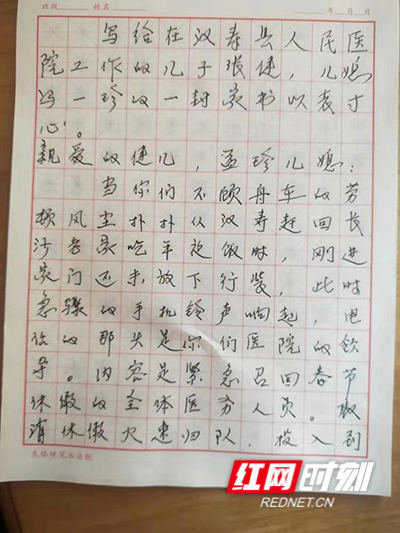 班级 姓名 年 月 日
写给在汉寿县人民医
院工作的儿子张健，儿媳
冯一珍的一封家书以表寸
心。
亲爱的健儿，孟珍儿媳：
当你们不顾舟车的劳
顿风尘扑扑从汉寿赶回长
沙老家吃年夜饭时，刚进
家门还未放下行装，此时
急骤的手机铃声响起，电
话的那头是你们医院的领
导。内容是紧急召回春节
休假的全体医务人员。取
消休假火速归队，投入到
米格硬笔书法纸
红网时刻
REDNET.CN